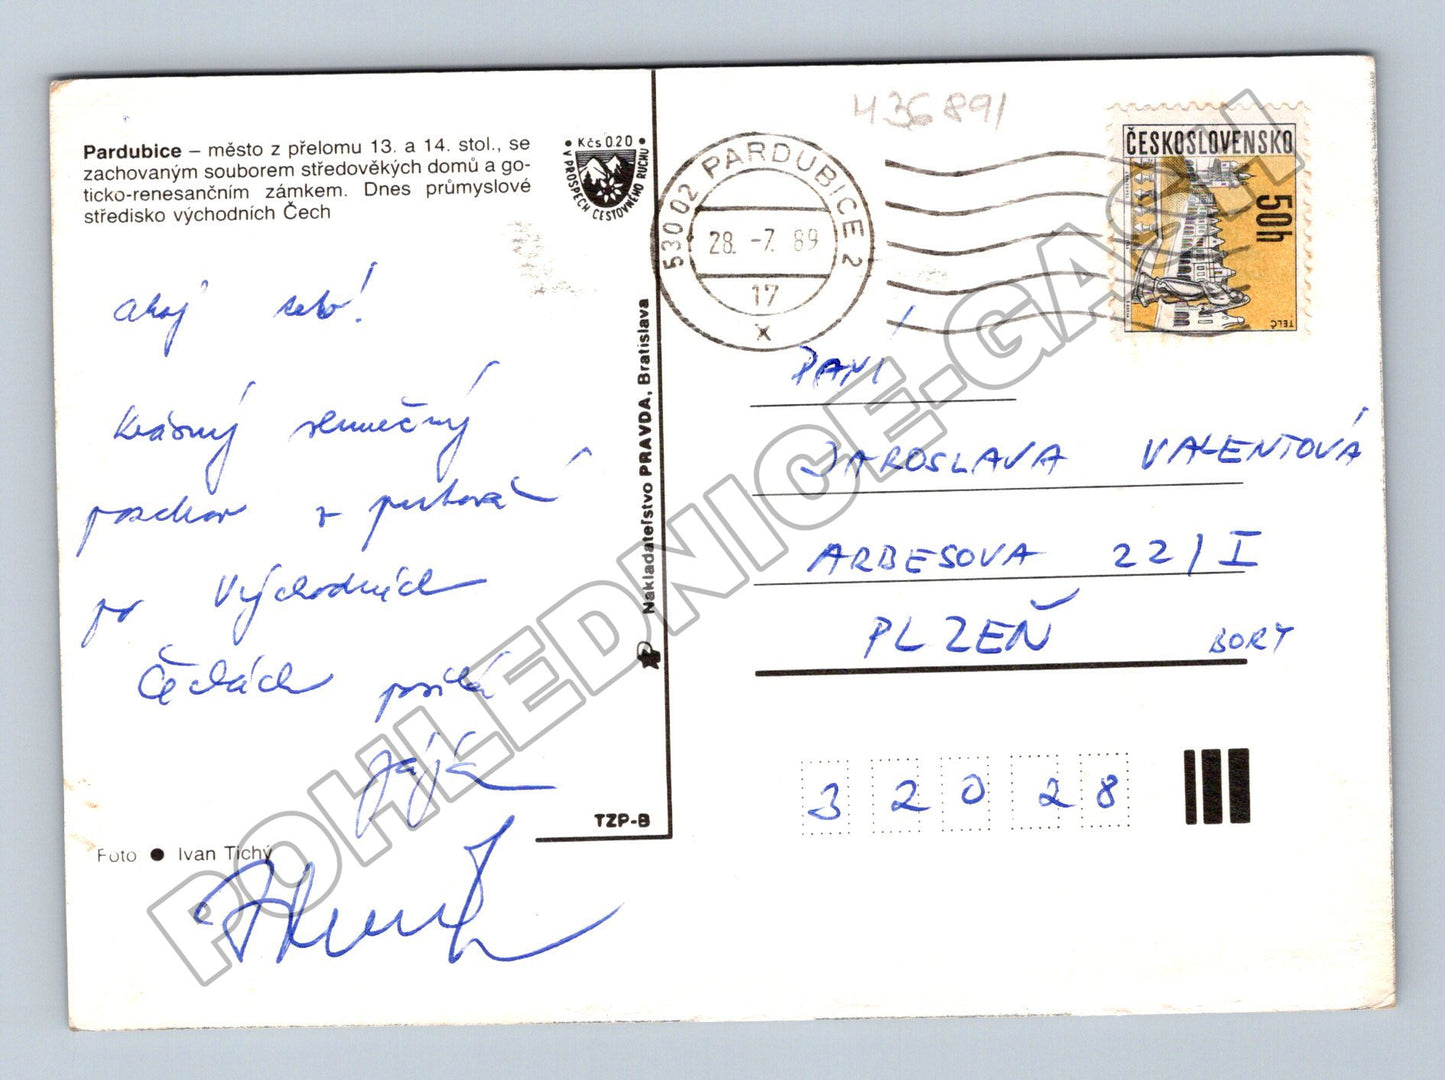 Pardubice – město z přelomu 13. a 14. stol., se
zachovaným souborem středověkých domů a go-
ticko-renesančním zámkem. Dnes průmyslové
středisko východních Čech
Kčs 0.20
V PROSPĚCH CESTOVNÉHO RUCHU
ahoj
krásný slunečný
po Východních
Čechách posílá
Jája
Foto ● Ivan Tichý
TZP-B
Nakladateľstvo PRAVDA, Bratislava
436891
530 02 PARDUBICE 2
28. -7. 89
17
x
ČESKOSLOVENSKO
50h
TELČ
PANÍ
JAROSLAVA VALENTOVÁ
ARBESOVA 22/I
PLZEŇ BORY
32028
POHLEDNICE.GASH